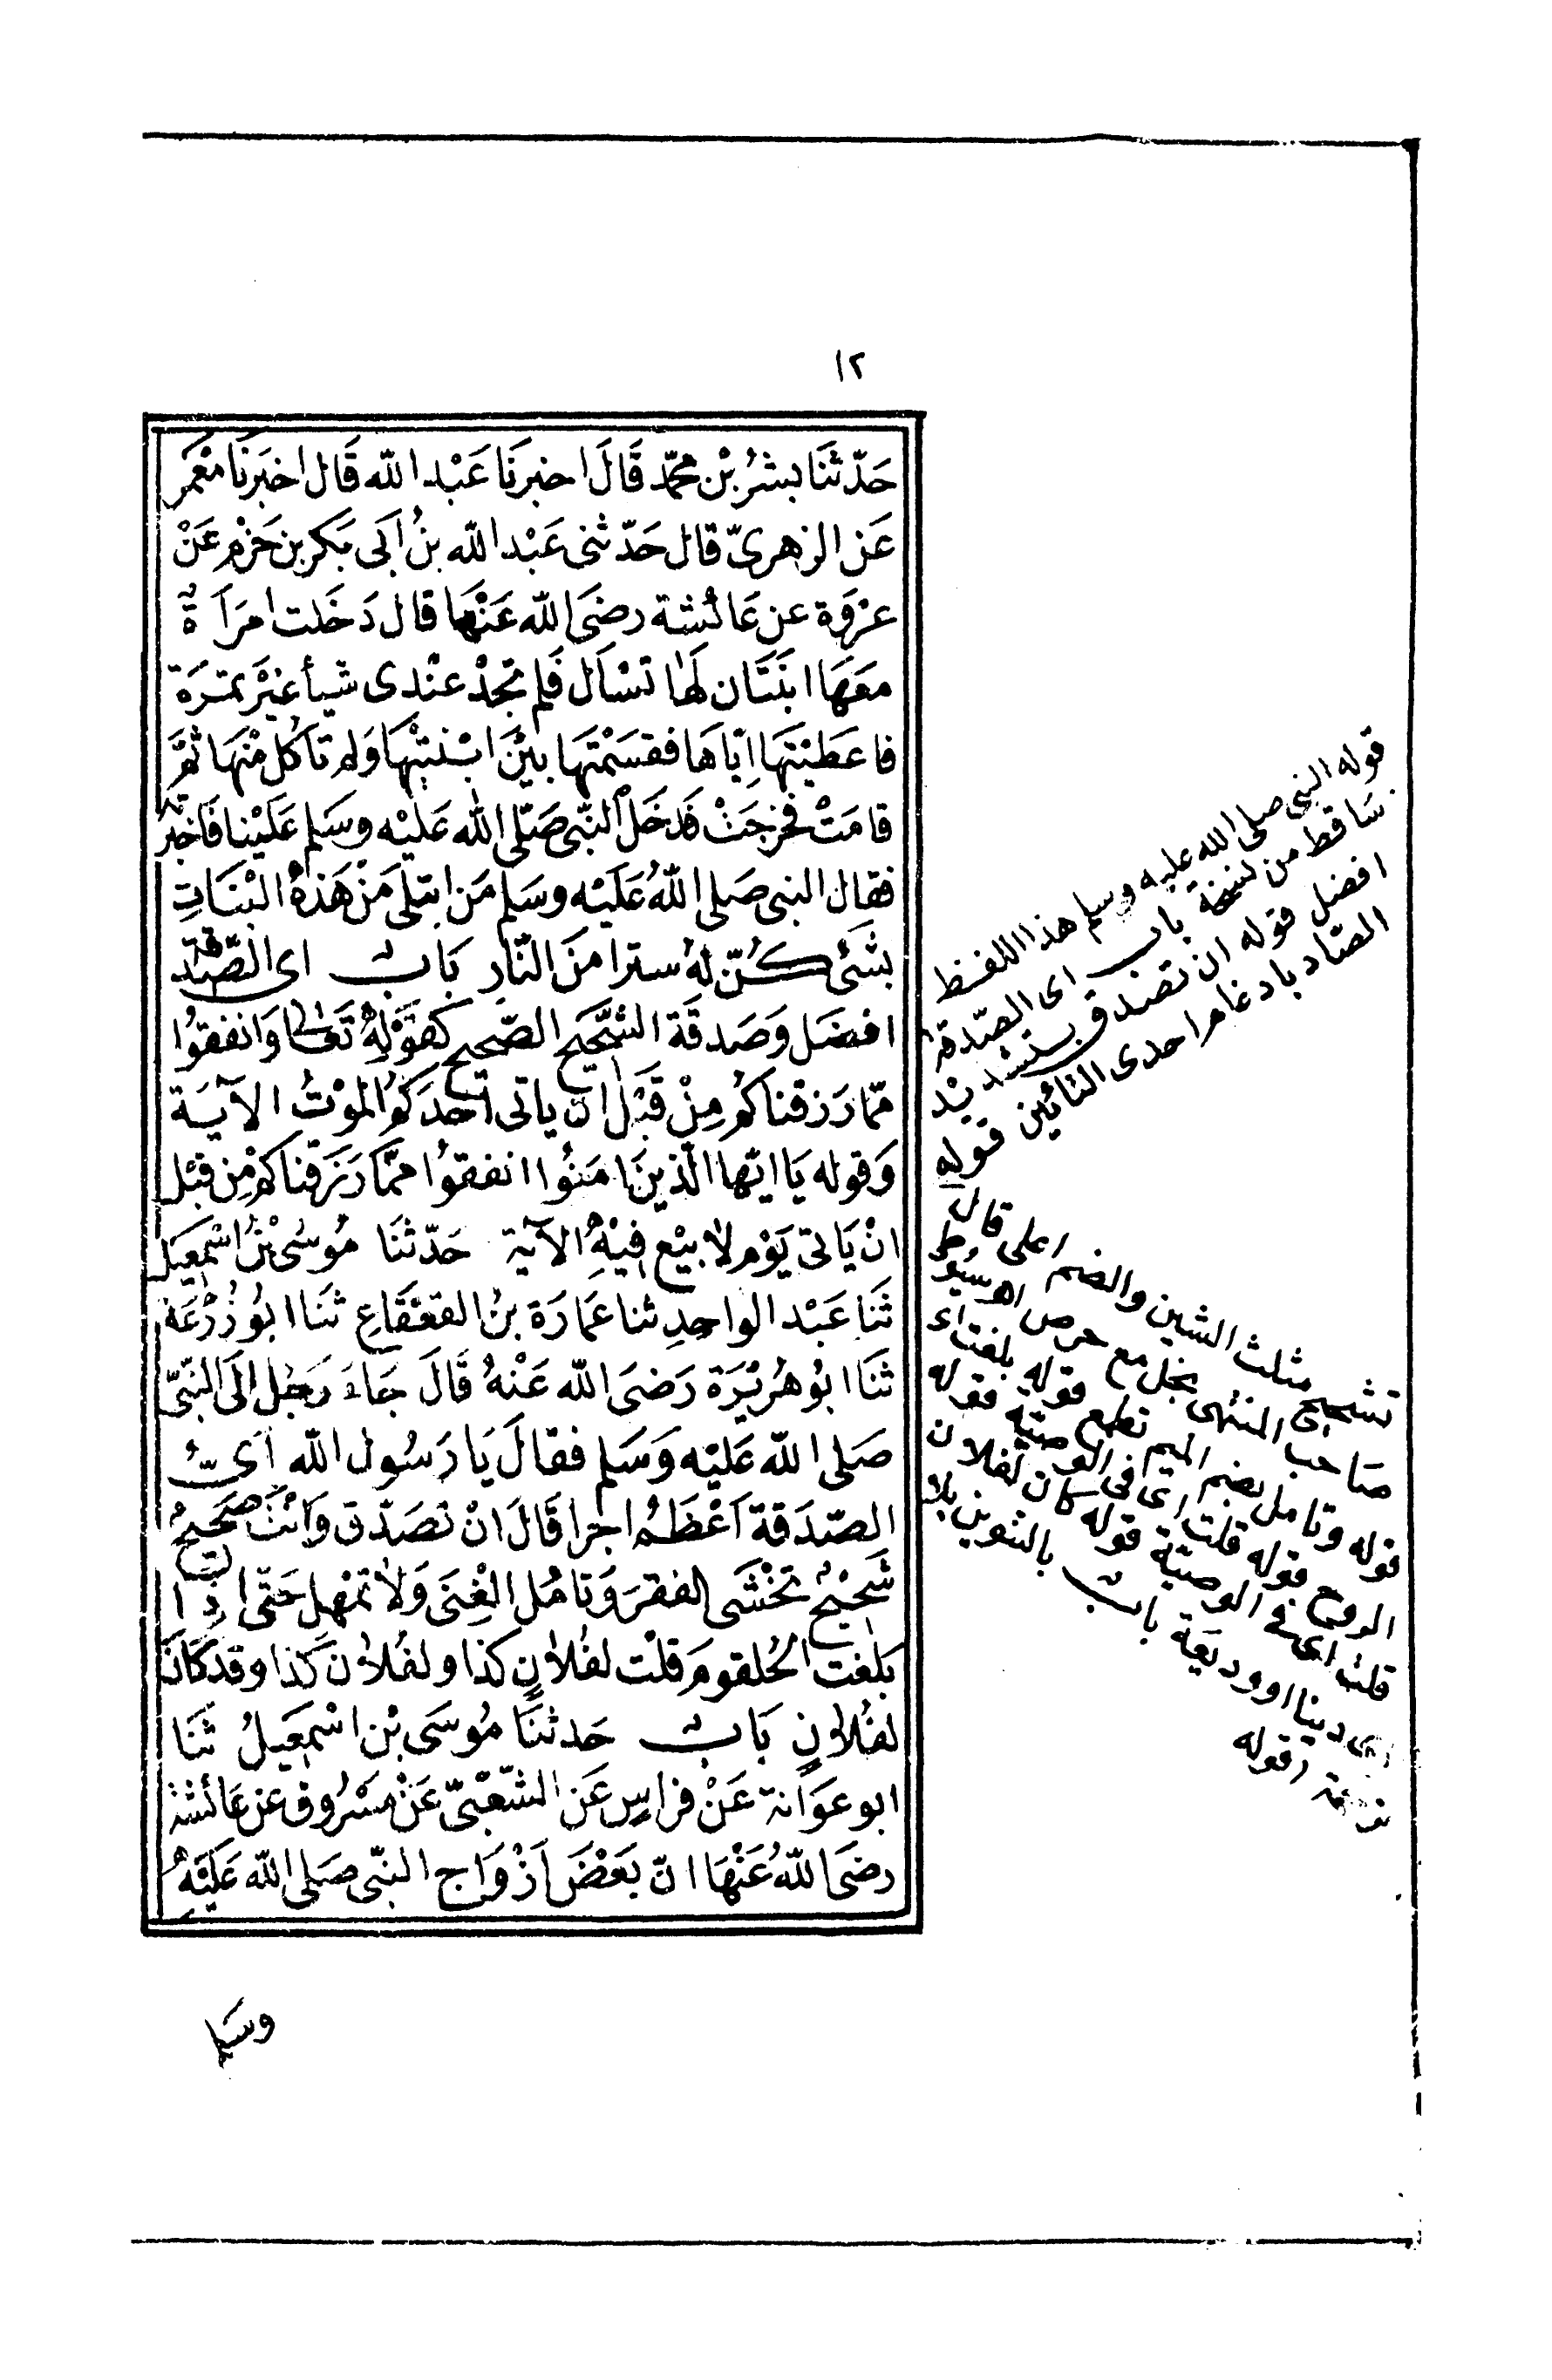 ١٢
حَدّثنَا بشرُ بْن محمّد قَالَ اخبرنَا عَبْد الله قَال اخبَرنَا مَعْمَر
عَن الزهرىّ قال حَدّثنى عَبْد الله بنُ اَبى بَكر بن حَزْم عَنْ
عرْوَة عن عَائشة رضىَ الله عَنْهَا قال دَخَلت امرَأَةٌ
معَهَا ابنَتَان لَهَا تسْاَل فَلم تجدْ عنْدى شيأ غيْر تمرَة
فاعطيْتهَا ايّاهَا فقسَمْتهَا بيْنَ ابْنتيْهَا وَلم تاكل منْهَا ثمَّ
قامَتْ فخرجَتْ فَدخَل النّبى صَلّى الله عَليْه وسَلم عَليْنا فَاخبرْته
فقال النبى صَلى اللهُ عَلَيْه وسَلم مَن ابتلى مَنْ هَذهْ البْنَاتِ
بشَئ كُنّ لهُ سترا منَ النّار بَابٌ اى الصّدقة
افضَل وَصَدقَة الشَّحيح الصّحيح كقَوْلِهِ تَعَالى وَانفقوُا
ممّا رَزقناكُم مِنْ قَبْل ان ياتى احَدَكُم الموْتُ الآيَة
وَقوله يَا ايّها الّذينَ امَنُوا انفقوُا ممَّا رَزَقناكمْ مِن قبْل
انْ يَاتى يَوْم لا بيْع فيْهِ الآيَة حَدّثنَا مُوسَى بْنُ اسْمعيَل
ثنَا عَبْد الواحدِ ثنا عمَارَة بنُ القعْقَاعِ ثنَا ابُو زُرْعَة
ثنَا ابُو هُريْرَة رَضىَ الله عَنْهُ قَالَ جَاءَ رَجُل الَى النبىّ
صَلى الله عَليْه وَسَلم فقالَ يَا رَسُول الله اَىُّ
الصّدَقة اَعْظَمُ اجْرا قَالَ انْ تصَدّق وَاَنْتَ صَحيحٌ
شَحيْحٌ تخْشَى الفقرَ وَتامُل الْغِنَى وَلا تمْهِل حَتّى اذا
بَلغت الحُلقومَ قلْت لفُلانٍ كذا ولفُلان كَذا وقد كَانَ
لفُلانٍ بَابٌ حَدثنَا مُوسَى بْن اسْمعيَلُ ثنَا
ابو عوَانة عَنْ فراسٍ عَن الشّعْبىّ عَنْ مسْرُوق عن عَائشة
رضىَ اللهُ عَنْهَا انّ بَعْضَ اَزْوَاج النبّى صَلى الله عَليْهِ
وسَلم
قوله النبى صلى الله عليه وسلم هذا اللفظ
سَاقط من نسخة باب اى الصّدقة
افضل قوله ان تصدق بتشديْد
الصّاد بادغام احدى التائين قوله
تشحيح مثلث الشين والضم اعلى قال
صَاحب المنتهى بخل مع حرص اهـ سيوطى
قوله وتامل بضم الميم تطمع قوله بلغت اى
الروح قوله قلت اى فى الوصيّة قوله
قلت اى فى الوصيّة قوله كان لفلان
اى دينا او وديعَة باب بالتنوين بلا
ترجمة قوله